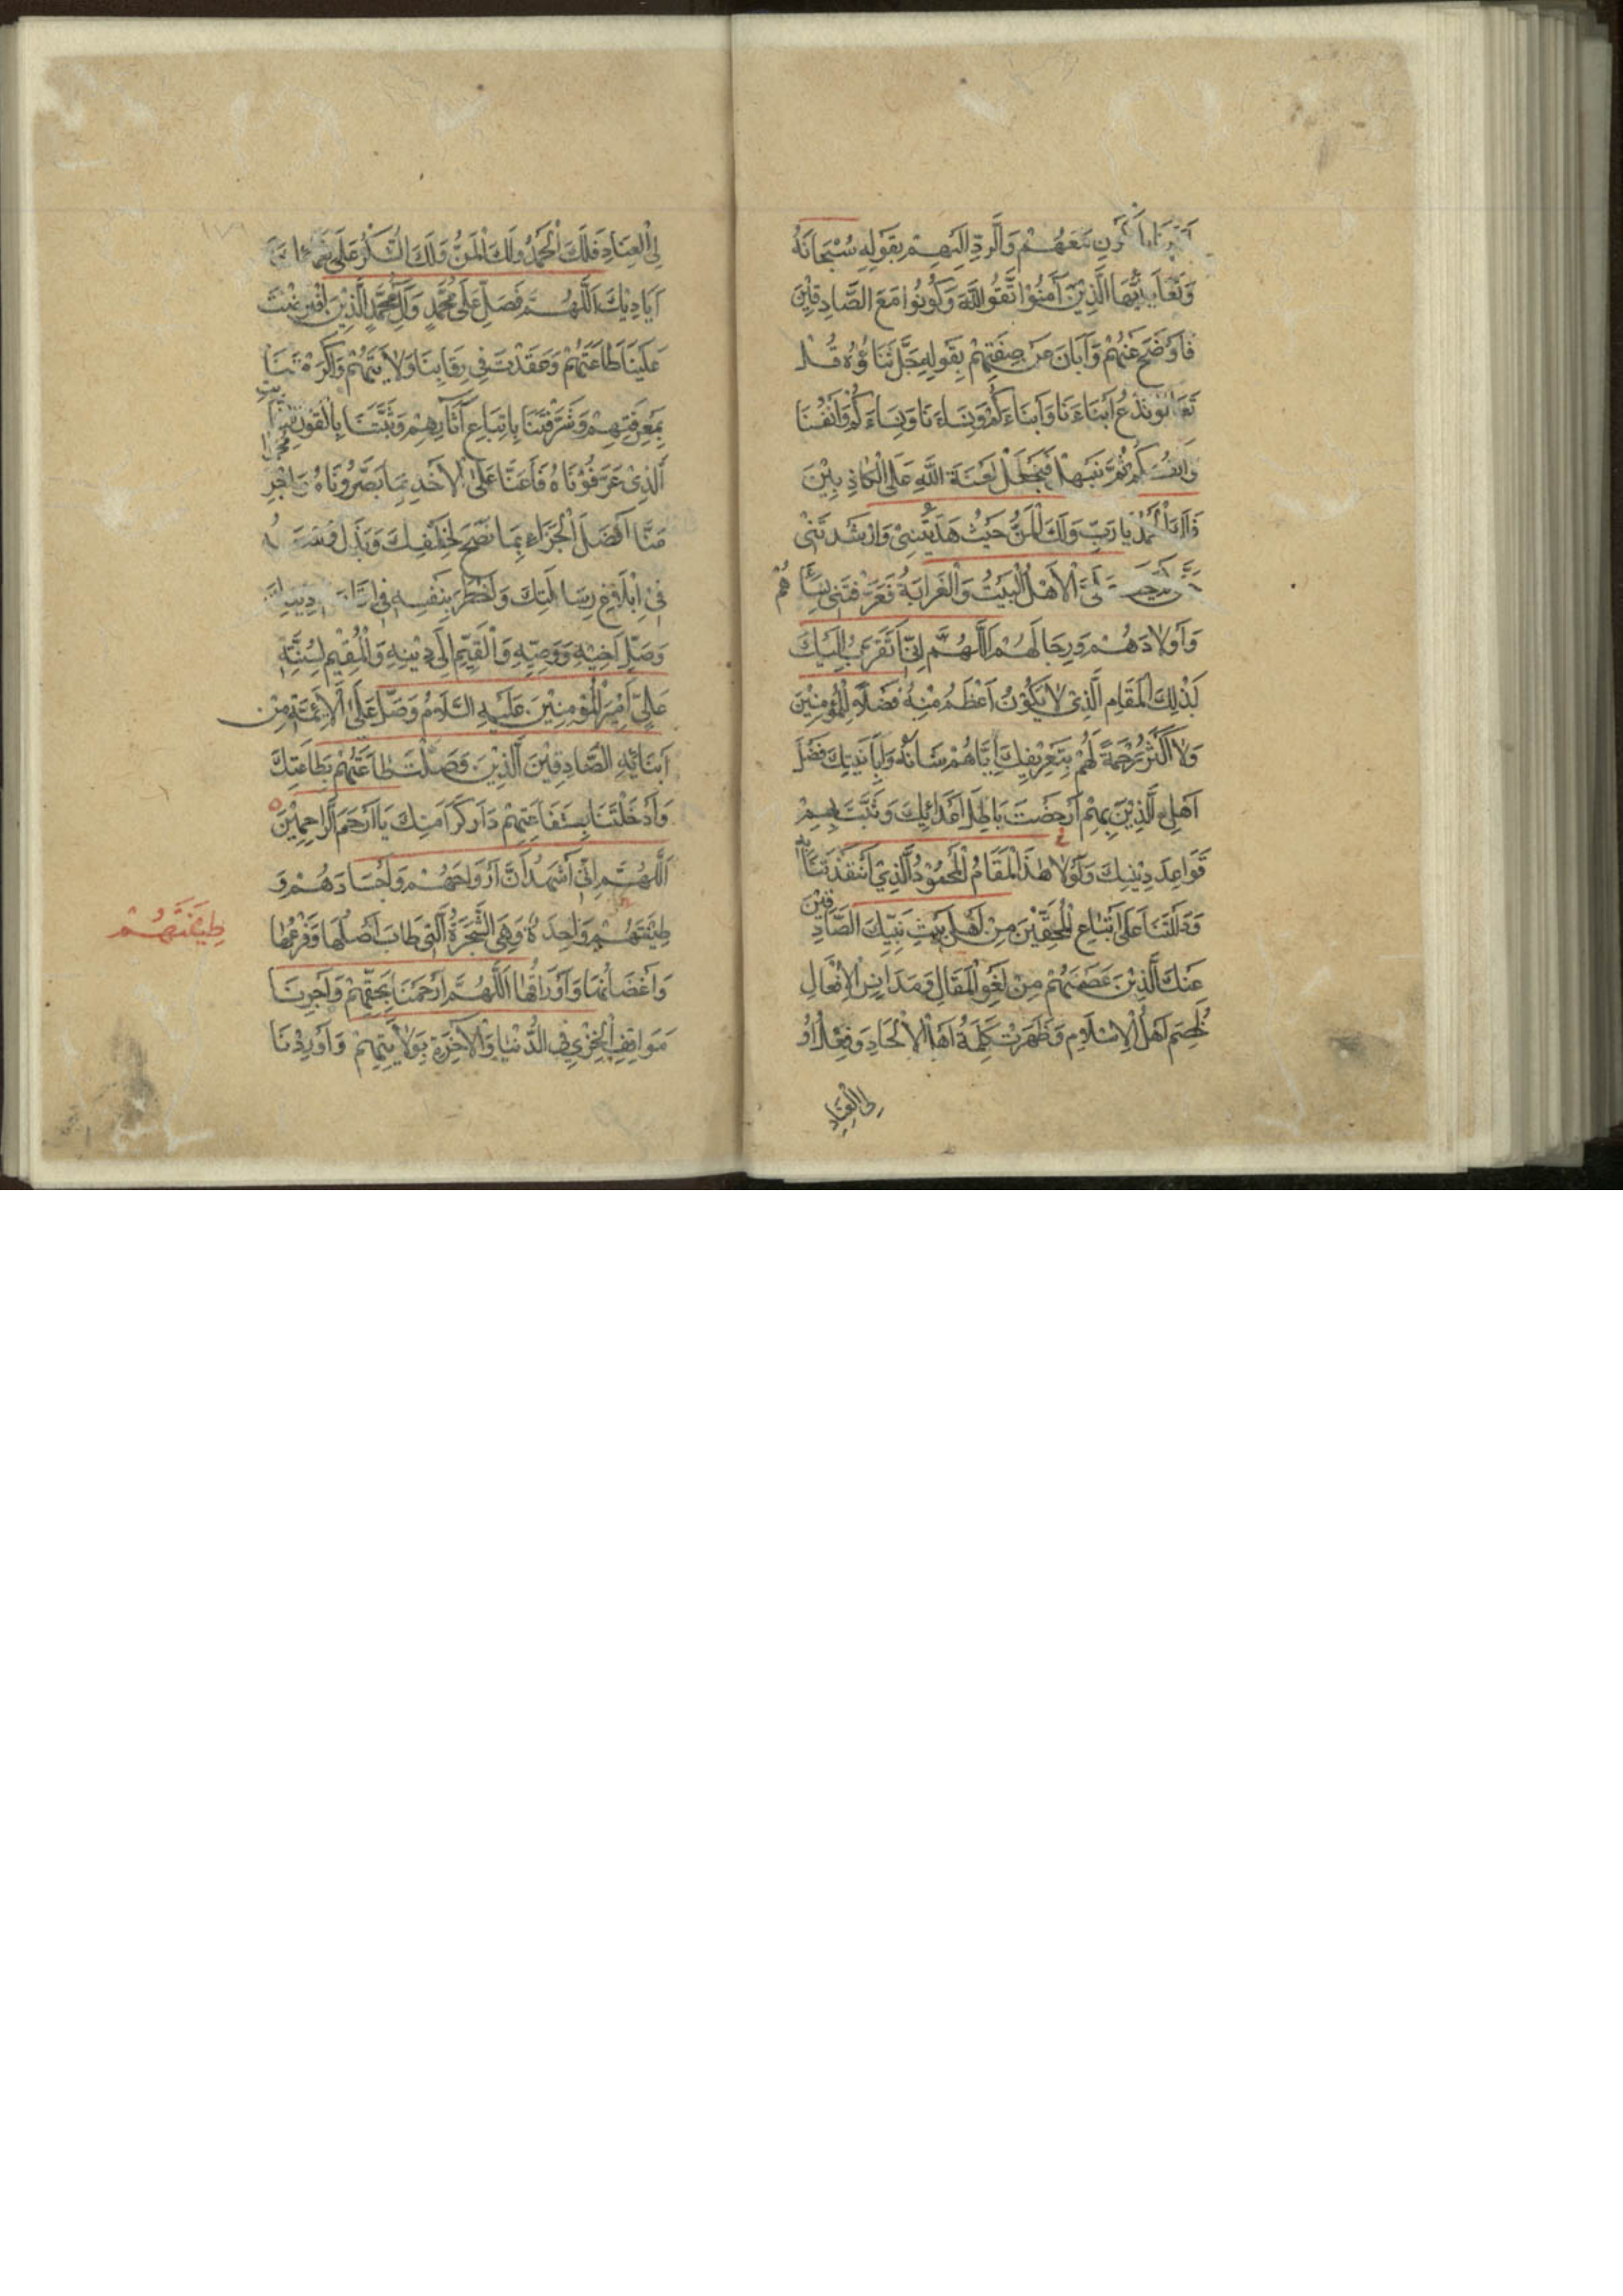 بِالْكَوْنِ مَعَهُمْ وَالرَّدِّ اِلَيْهِمْ بِقَوْلِهِ سُبْحَانَهُ
وَتَعَالَى يَا اَيُّهَا الَّذِيْنَ آمَنُوْا اتَّقُوا اللّٰهَ وَكُوْنُوْا مَعَ الصَّادِقِيْنَ
فَاَوْضَحَ عَنْهُمْ وَاَبَانَ عَنْ صِفَتِهِمْ بِقَوْلِهِ جَلَّ ثَنَاؤُهُ قُلْ
تَعَالَوْ نَدْعُ اَبْنَاءَنَا وَاَبْنَاءَكُمْ وَنِسَاءَنَا وَنِسَاءَكُمْ وَاَنْفُسَنَا
وَاَنْفُسَكُمْ ثُمَّ نَبْتَهِلْ فَنَجْعَلْ لَعْنَةَ اللّٰهِ عَلَى الْكَاذِبِيْنَ
فَلَكَ الْحَمْدُ يَا رَبِّ وَلَكَ الْمَنُّ حَيْثُ هَدَيْتَنِيْ وَاَرْشَدْتَنِيْ
الْاَهْلُ الْبَيْتُ وَالْقَرَابَةُ فَعَرَّفْتَنِيْ نِسَاءَهُمْ
وَاَوْلَادَهُمْ وَرِجَالَهُمْ اَللّٰهُمَّ اِنِّيْ اَتَقَرَّبُ اِلَيْكَ
بَذٰلِكَ الْمَقَامِ الَّذِيْ لَا يَكُوْنُ اَعْظَمُ مِنْهُ فَضْلًا لِلْمُؤْمِنِيْنَ
وَلَا اَكْثَرُ رَحْمَةً لَهُمْ بِتَعْرِيْفِكَ اِيَّاهُمْ شَاْنَهُ وَاِبَانَتِكَ فَضْلَ
اَهْلِهِ الَّذِيْنَ بِهِمْ اَدْحَضْتَ بَاطِلَ اَعْدَائِكَ وَثَبَّتَّ بِهِمْ
قَوَاعِدَ دِيْنِكَ وَلَوْلَا هٰذَا الْمَقَامُ الْمَحْمُوْدُ الَّذِيْ اَنْقَذْتَنَا بِهِ
وَدَلَلْتَنَا عَلَى اتِّبَاعِ الْمُحِقِّيْنَ مِنْ اَهْلِ بَيْتِ نَبِيِّكَ الصَّادِقِيْنَ
عَنْكَ الَّذِيْنَ عَصَمْتَهُمْ مِنْ لَغْوِ الْمَقَالِ وَمَدَانِسِ الْاَفْعَالِ
لَخُصِمَ اَهْلُ الْاِسْلَامِ وَظَهَرَتْ كَلِمَةُ اَهْلِ الْاِلْحَادِ وَفِعْلُ اُوْ
لِى الْعِنَادِ
لِى الْعِنَادِ فَلَكَ الْحَمْدُ وَلَكَ الْمَنُّ وَلَكَ الشُّكْرُ عَلَى نَعْمَائِكَ وَ
اَيَادِيْكَ اَللّٰهُمَّ فَصَلِّ عَلَى مُحَمَّدٍ وَآلِ مُحَمَّدٍ الَّذِيْنَ افْتَرَضْتَ
عَلَيْنَا طَاعَتَهُمْ وَعَقَدْتَ فِيْ رِقَابِنَا وَلَايَتَهُمْ وَاَكْرَمْتَنَا
بِمَعْرِفَتِهِمْ وَشَرَّفْتَنَا بِاتِّبَاعِ آثَارِهِمْ وَثَبَّتَّنَا بِالْقَوْلِ الثَّابِتِ
الَّذِيْ عَرَّفُوْنَاهُ فَاَعِنَّا عَلَى الْاَخْذِ بِمَا بَصَّرُوْنَاهُ وَاجْزِ مُحَمَّدًا
مِنَّا اَفْضَلَ الْجَزَاءِ بِمَا نَصَحَ لِخَلْقِكَ وَبَذَلَ وُسْعَهُ
فِيْ اِبْلَاغِ رِسَالَتِكَ وَاَخْطَرَ بِنَفْسِهِ فِيْ دِيْنِكَ
وَصَلِّ اَخِيْهِ وَوَصِيِّهِ وَالْقَيِّمِ اِلَى دِيْنِهِ وَالْمُقِيْمِ لِسُنَّتِهِ
عَلِيٍّ اَمِيْرِ الْمُؤْمِنِيْنَ عَلَيْهِ السَّلَامُ وَصَلِّ عَلَى الْاَئِمَّةِ مِنْ
اَبْنَائِهِ الصَّادِقِيْنَ الَّذِيْنَ وَصَلْتَ طَاعَتَهُمْ بِطَاعَتِكَ
وَاَدْخَلْتَنَا بِشَفَاعَتِهِمْ دَارَ كَرَامَتِكَ يَا اَرْحَمَ الرَّاحِمِيْنَ
اَللّٰهُمَّ اِنِّيْ اَشْهَدُ اَنَّ اَرْوَاحَهُمْ وَاَجْسَادَهُمْ وَ
طِيْنَتَهُمْ وَاحِدَةٌ وَهِيَ الشَّجَرَةُ الَّتِيْ طَابَ اَصْلُهَا وَفَرْعُهَا
طِيْنَتَهُمْ
وَاَغْصَانُهَا وَاَوْرَاقُهَا اَللّٰهُمَّ ارْحَمْنَا بِحَقِّهِمْ وَاَجِرْنَا
مَوَاقِفَ الْخِزْيِ فِي الدُّنْيَا وَالْآخِرَةِ بِوَلَايَتِهِمْ وَاَوْرِدْنَا